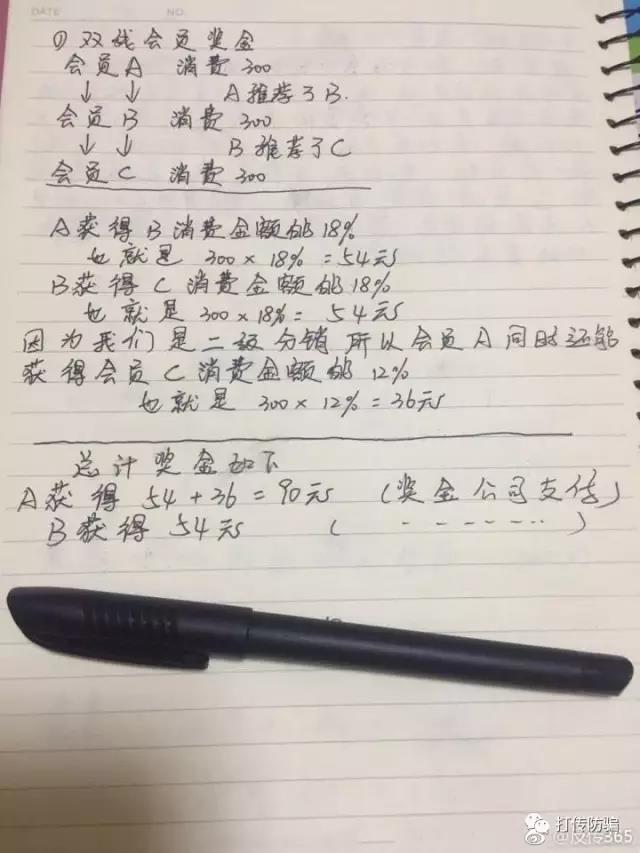 DATE NO.
① 双线会员奖金
会员A 消费 300
↓ ↓ A推荐了B.
会员B 消费 300
↓ ↓ B推荐了C
会员C 消费 300
A获得B消费金额的18%
也就是 300×18%=54元
B获得C消费金额的18%
也就是 300×18%= 54元
因为我们是二级分销 所以会员A同时还能
获得会员C消费金额的12%
也就是 300×12%=36元
总计奖金如下
A获得 54+36=90元 (奖金公司支付)
B获得 54元 ( - - - - - - ‥ )
打传防骗
@反传365